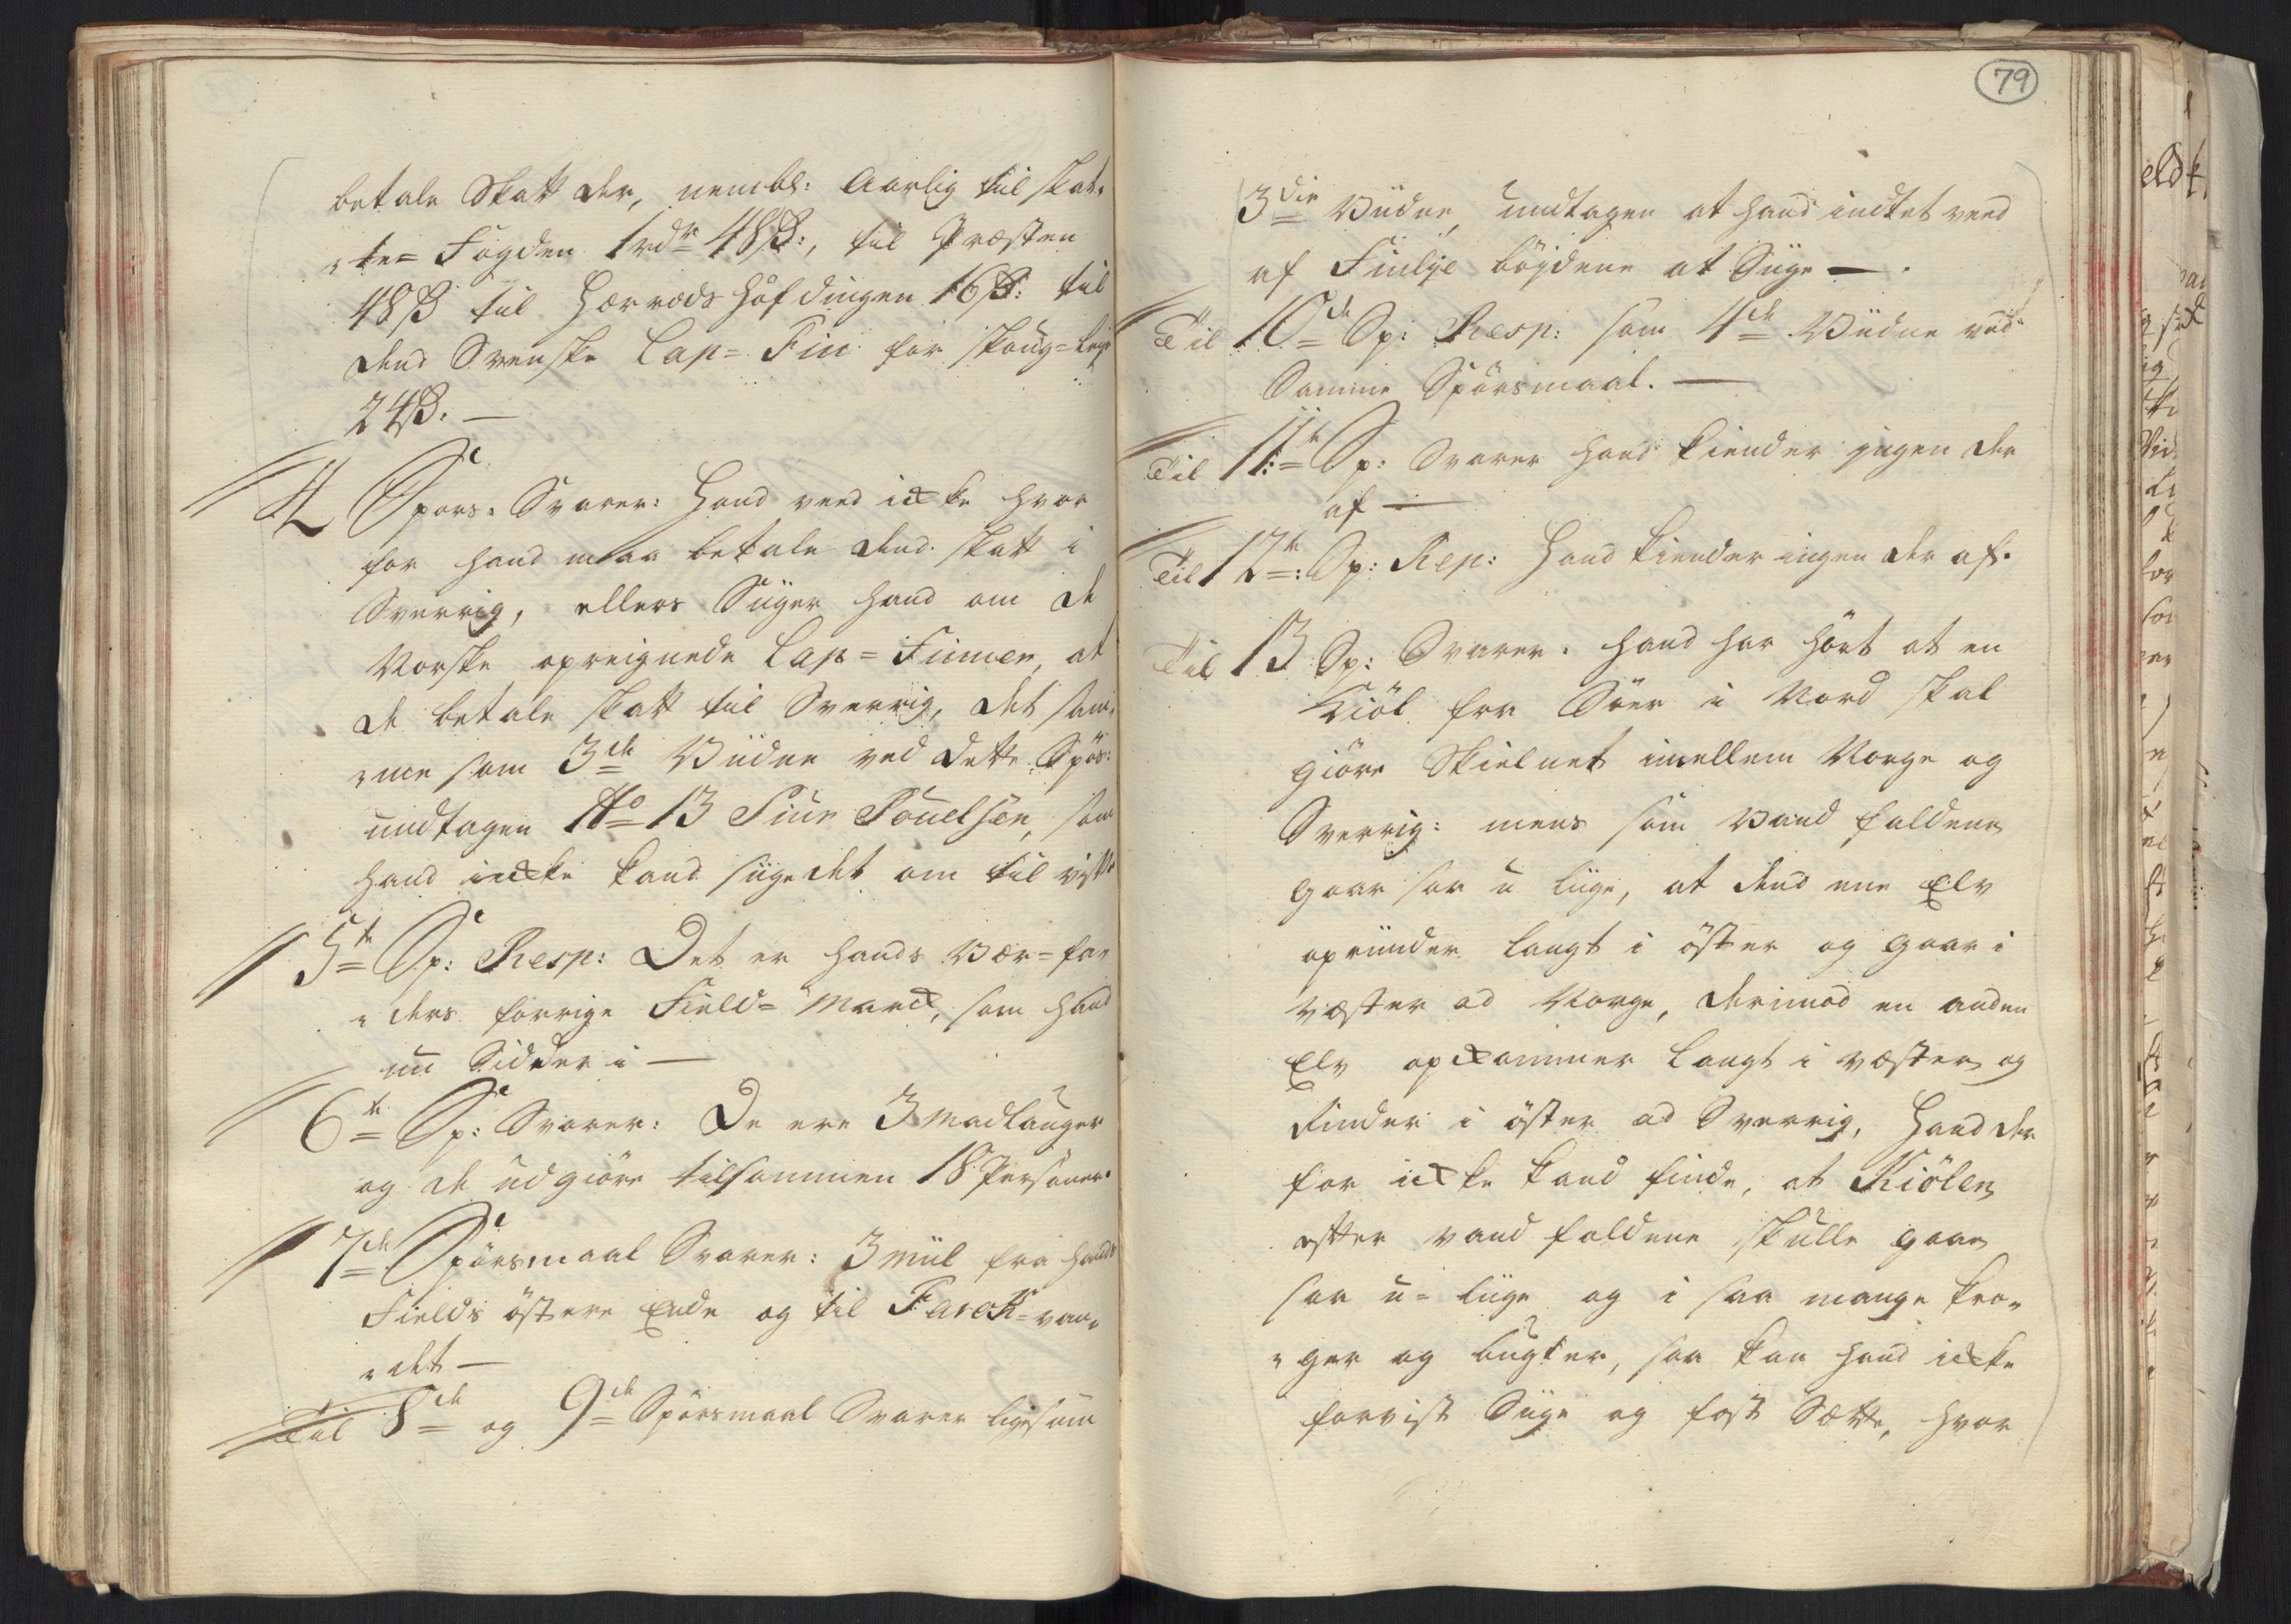 betale Skatt der, nembl: Aarlig til skat,,
,,te= Fogden 1rdr 48ß:, til Præsten
48ß til Hærreds Höfdingen 16ß: til
dend Svenske Lap= Fin for skoug=leye
24ß. —
4 Spors: Svarer: Hand veed icke hvor
for hand maa betale dend skatt i
Sverrig, ellers Siiger hand om de
Norske opreignede Lap= Finner, at
de betale skatt til Sverrig, det sam,,
,,me som 3de Viidne ved dette Spörs:
undtagen No 13 Siur Pouelsen, som
hand icke kand siige det om til vist
5te Sp: Resp: Det er hands Vær=for
,,ders forrige Field= Marck, som hand
nu Sidder i —
6te Sp: Svarer: De ere 3 Madlauger
og de udgiöre tilsammen 18 Personer.
7de Spörsmaal Svarer: 3 miil fra hands
Fields östere Ende og til Farok= van,,
,,det —
Til 8de og 9de Spörsmaal Svarer ligesom
79
3die Viidne, undtagen at hand indtet veed
af Finlye böydene at Siige — .
Til 10de Sp: Resp: som 4de Viidne ved
Samme Spörsmaal. —
Til 11:te Sp: Svarer hand kiender ingen der
af —
Til 12te: Sp: Rep: Hand kiender ingen der af.
Til 13 Sp: Svarer: hand har hört at en
Kiöl fra Söer i Nord skal
giöre Skielnet imellem Norge og
Sverrig: mens som Vand faldene
gaar saa u liige, at dend ene Elv
oprinder langt i öster og gaar i
væster ad Norge, derimod en anden
Elv opkommer langt i væster og
rinder i öster ad Sverrig, Hand der
for icke kand finde, at Kiölen
efter vand faldene skulle gaae
saa u= liige og i saa mange kro,,
,,ger og bugter, saa kan hand icke
forvist Siige og fast Sætte, hvor